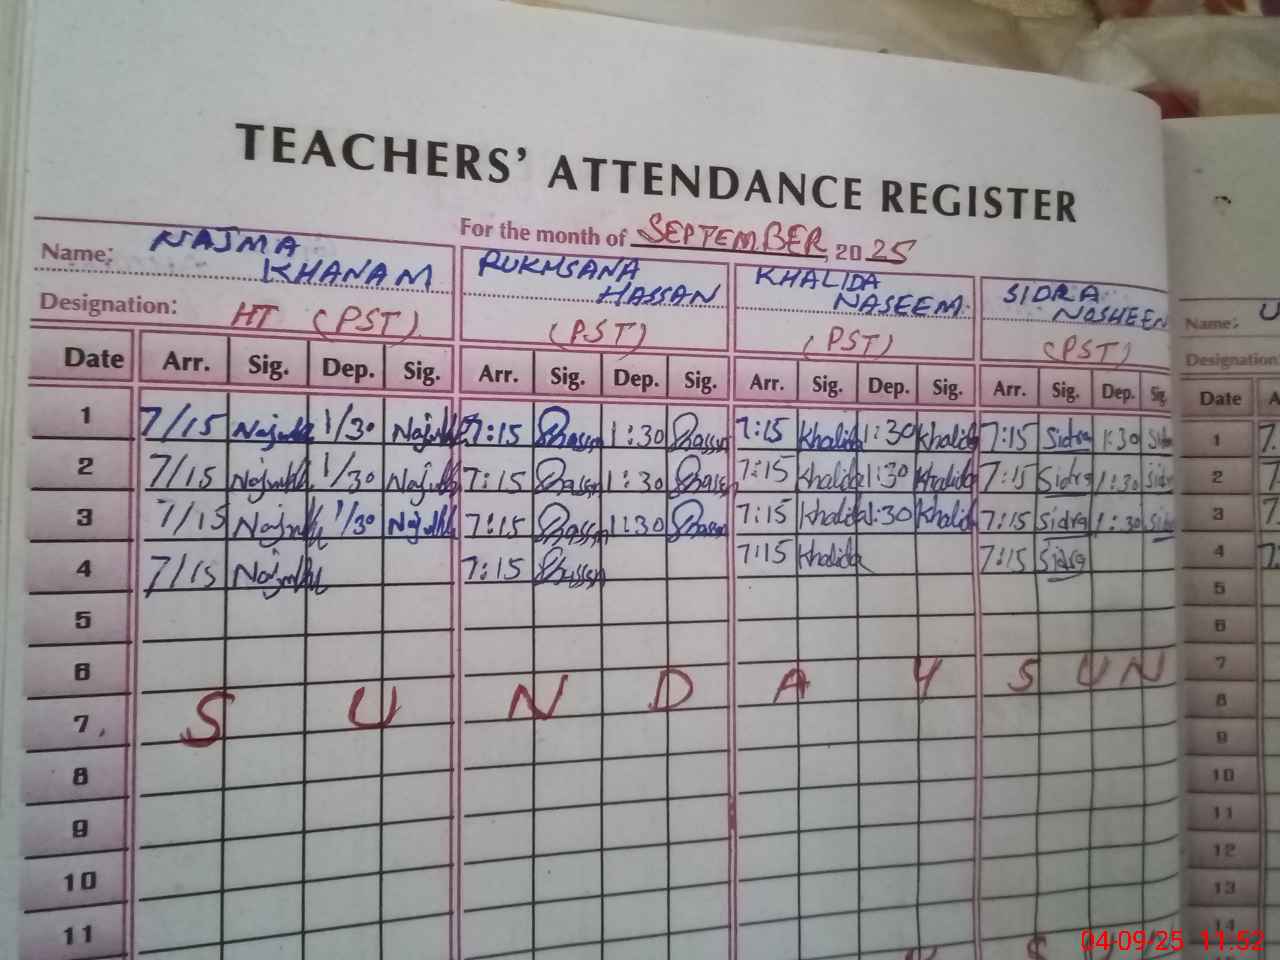 TEACHERS' ATTENDANCE REGISTER
For the month of SEPTEMBER, 2025
Name: NAJMA KHANAM RUKHSANA HASSAN KHALIDA NASEEM SIDRA NOSHEEN
Designation: HT (PST) (PST) (PST) (PST)
Date Arr. Sig. Dep. Sig. Arr. Sig. Dep. Sig. Arr. Sig. Dep. Sig. Arr. Sig. Dep. Sig.
1 7/15 1/30 7:15 1:30 7:15 Khalida 1:30 Khalida 7:15 Sidra 1:30
2 7/15 1/30 7:15 1:30 7:15 Khalida 1:30 Khalida 7:15 Sidra 1:30
3 7/15 1/30 7:15 1:30 7:15 Khalida 1:30 Khalida 7:15 Sidra 1:30
4 7/15 7:15 7:15 Khalida 7:15 Sidra
5
6
7 S U N D A Y S U N
8
9
10
11
Name:
Designation
Date
1
2
3
4
5
6
7
8
9
10
11
12
13
14
04-09-25 11:52